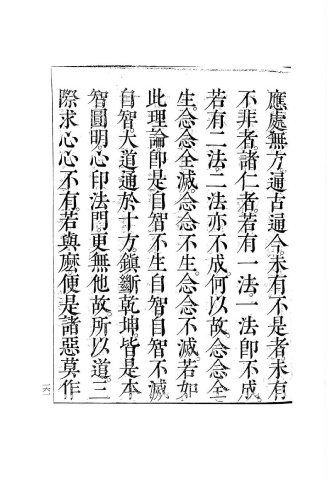 應處無方。通古通今。未有不是者。未有
不非者。諸仁者。若有一法。一法卽不成。
若有二法。二法亦不成。何以故。念念全
生。念念全滅。念念不生。念念不滅。若如
此理論。卽是自智不生。自智自智不滅
自智大道通於十方。鎭斷乾坤。皆是本
智圓明。心印法門。更無他故。所以道。三
際求心。心不有。若與麽。便是諸惡莫作